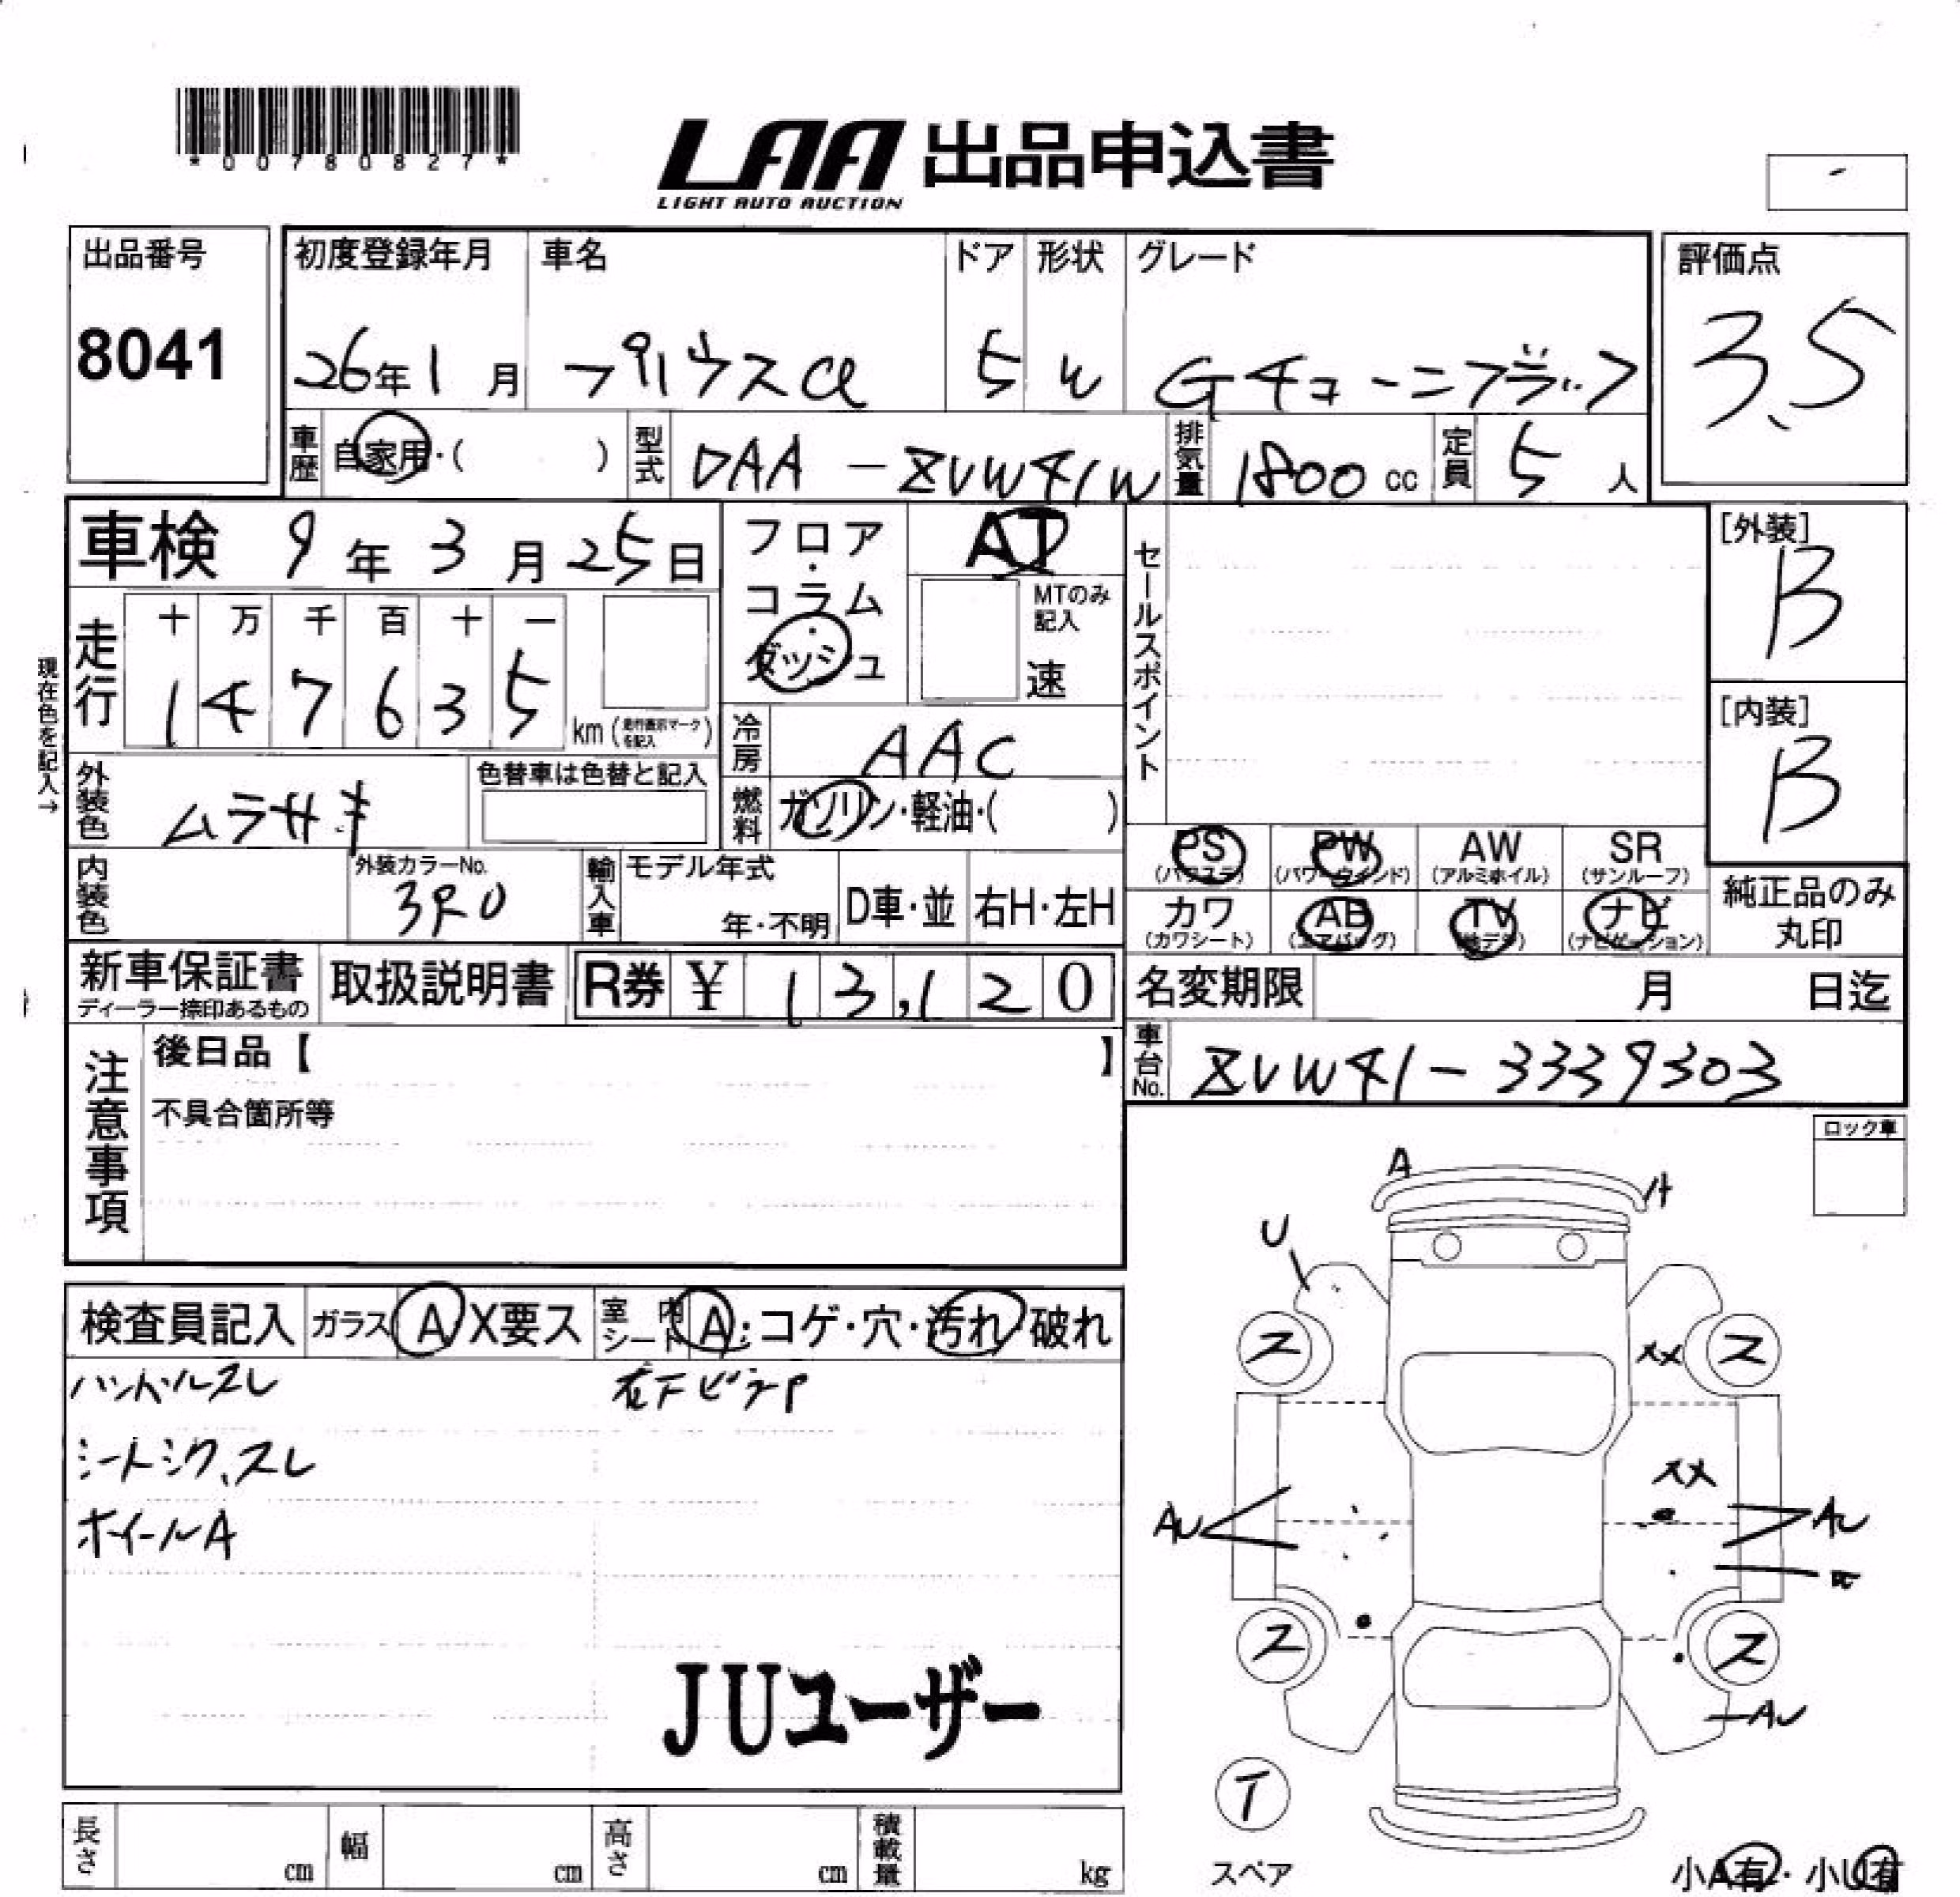 *00780827*
LAA 出品申込書
LIGHT AUTO AUCTION
出品番号
8041
初度登録年月
26年1月
車名
プリウスα
ドア
5
形状
W
グレード
Gチューンブラック
評価点
3.5
車歴
自家用・( )
型式
DAA-ZVW41W
排気量
1800 cc
定員
5 人
車検 9年3月25日
フロア・コラム・ダッシュ
AT
MTのみ記入
速
セールスポイント
[外装]
B
[内装]
B
現在色を記入→
走行
十 万 千 百 十 一
1 4 7 6 3 5
km (走行表示マークを記入)
冷房
AAC
外装色
ムラサキ
色替車は色替と記入
燃料
ガソリン・軽油・( )
内装色
外装カラーNo.
3R0
輸入車
モデル年式
年・不明
D車・並
右H・左H
PS
(パワステ)
PW
(パワーウインド)
AW
(アルミホイル)
SR
(サンルーフ)
カワ
(カワシート)
AB
(エアバッグ)
TV
(地デジ)
ナビ
(ナビゲーション)
純正品のみ
丸印
新車保証書
ディーラー捺印あるもの
取扱説明書
R券 ¥ 13,120
名変期限 月 日迄
注意事項
後日品【 】
不具合箇所等
車台No.
ZVW41-3339303
ロック車
検査員記入
ガラス
A X要ス
室内シート
A・コゲ・穴・汚れ 破れ
ハンドルスレ
シートシワ、スレ
ホイールA
JUユーザー
A
U
ス
ス
XX
XX
AU
AU
ス
ス
AU
T
スペア
小A有・小U有
長さ cm
幅 cm
高さ cm
積載量 kg